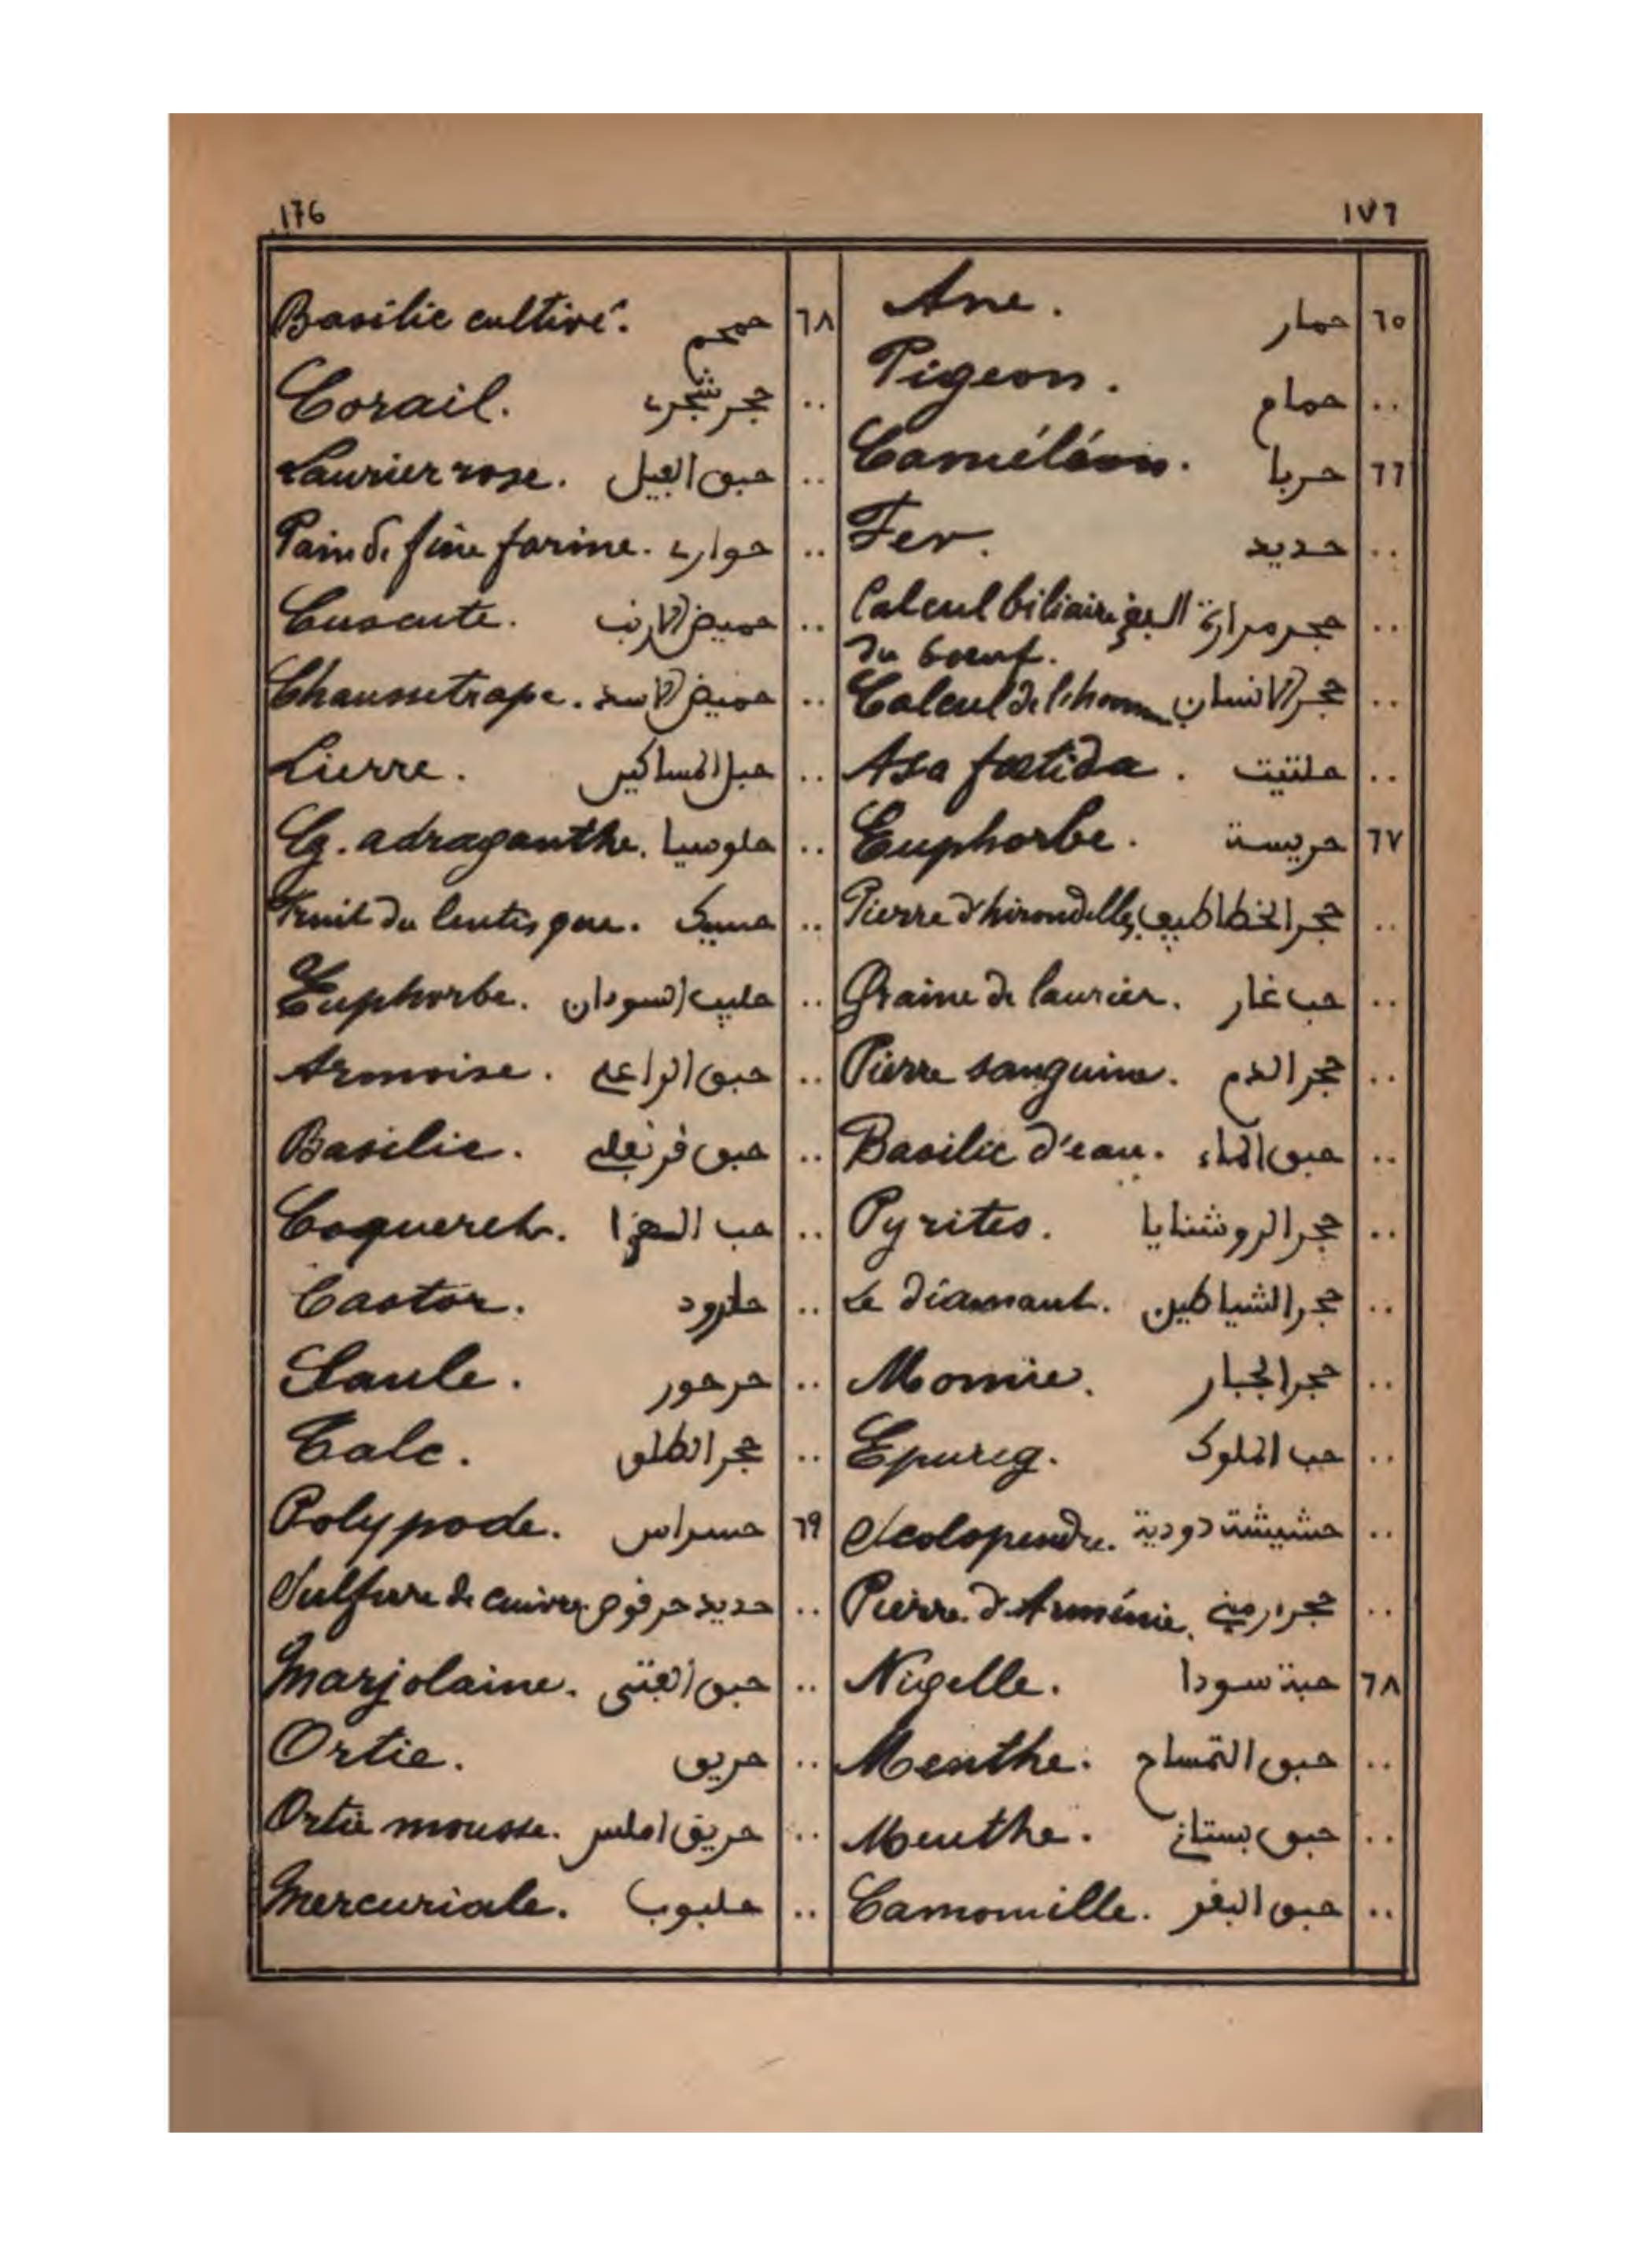 176 ١٧٦
٦٥ حمار Ane.
.. حمام Pigeon.
٦٦ حربا Caméléon.
.. حديد Fer.
.. حجر مرارة البقر Calcul biliaire
du boeuf.
.. حجر الانسان Calcul de l'homme
.. حلتيت Asa foetida.
٦٧ حريسة Euphorbe.
.. حجر الخطاطيف Pierre d'hirondelles
.. حب غار Graine de laurier.
.. حجر الدم Pierre sanguine.
.. حبق الماء Basilic d'eau.
.. حجر الروشنايا Pyrites.
.. حجر الشياطين Le diamant.
.. حجر الجبار Momie.
.. حب الملوك Epureg.
.. حشيشة دودية Scolopendre.
.. حجر ارميني Pierre d'Arménie.
٦٨ حبة سودا Nigelle.
.. حبق التمساح Menthe.
.. حبق بستاني Menthe.
.. حبق البقر Camomille.
٦٨ حمحم Basilic cultivé.
.. حجر شجري Corail.
.. حبق الفيل Laurier rose.
.. حواري Pain de fine farine.
.. حميض الارنب Cuscute.
.. حميض الاسد Chaussetrape.
.. حبل المساكين Lierre.
.. حلوسيا Eg. adraganthe.
.. حسيك Fruit du lentisque.
.. حليب السودان Euphorbe.
.. حبق الراعي Armoise.
.. حبق قرنفلي Basilic.
.. حب Coqueret.
.. Castor.
.. حرحور Saule.
.. حجر الطلق Talc.
٦٩ حسراس Polypode.
.. حديد حرقوص Sulfure de cuivre.
.. حبق الفتى Marjolaine.
.. حريق Ortie.
.. حريق املس Ortie mousse.
.. حلبوب Mercuriale.